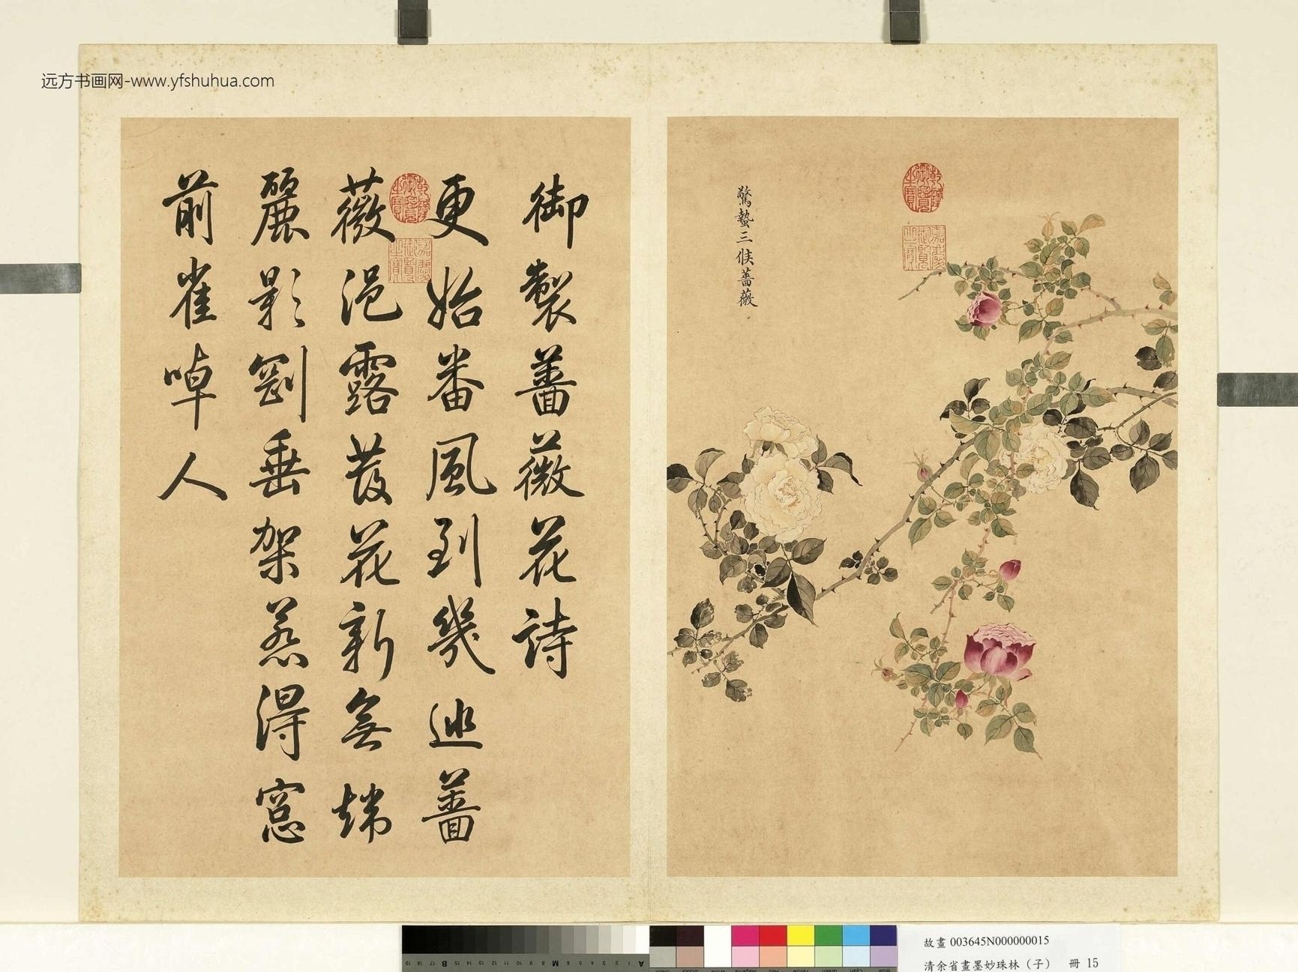 远方书画网-www.yfshuhua.com
驚蟄三候薔薇
御製薔薇花詩
更始番風到幾巡薔
薇浥露發花新無端
麗影劉垂架惹得窓
前雀啅人
故畫 003645N000000015
清余省畫墨妙珠林(子) 冊 15